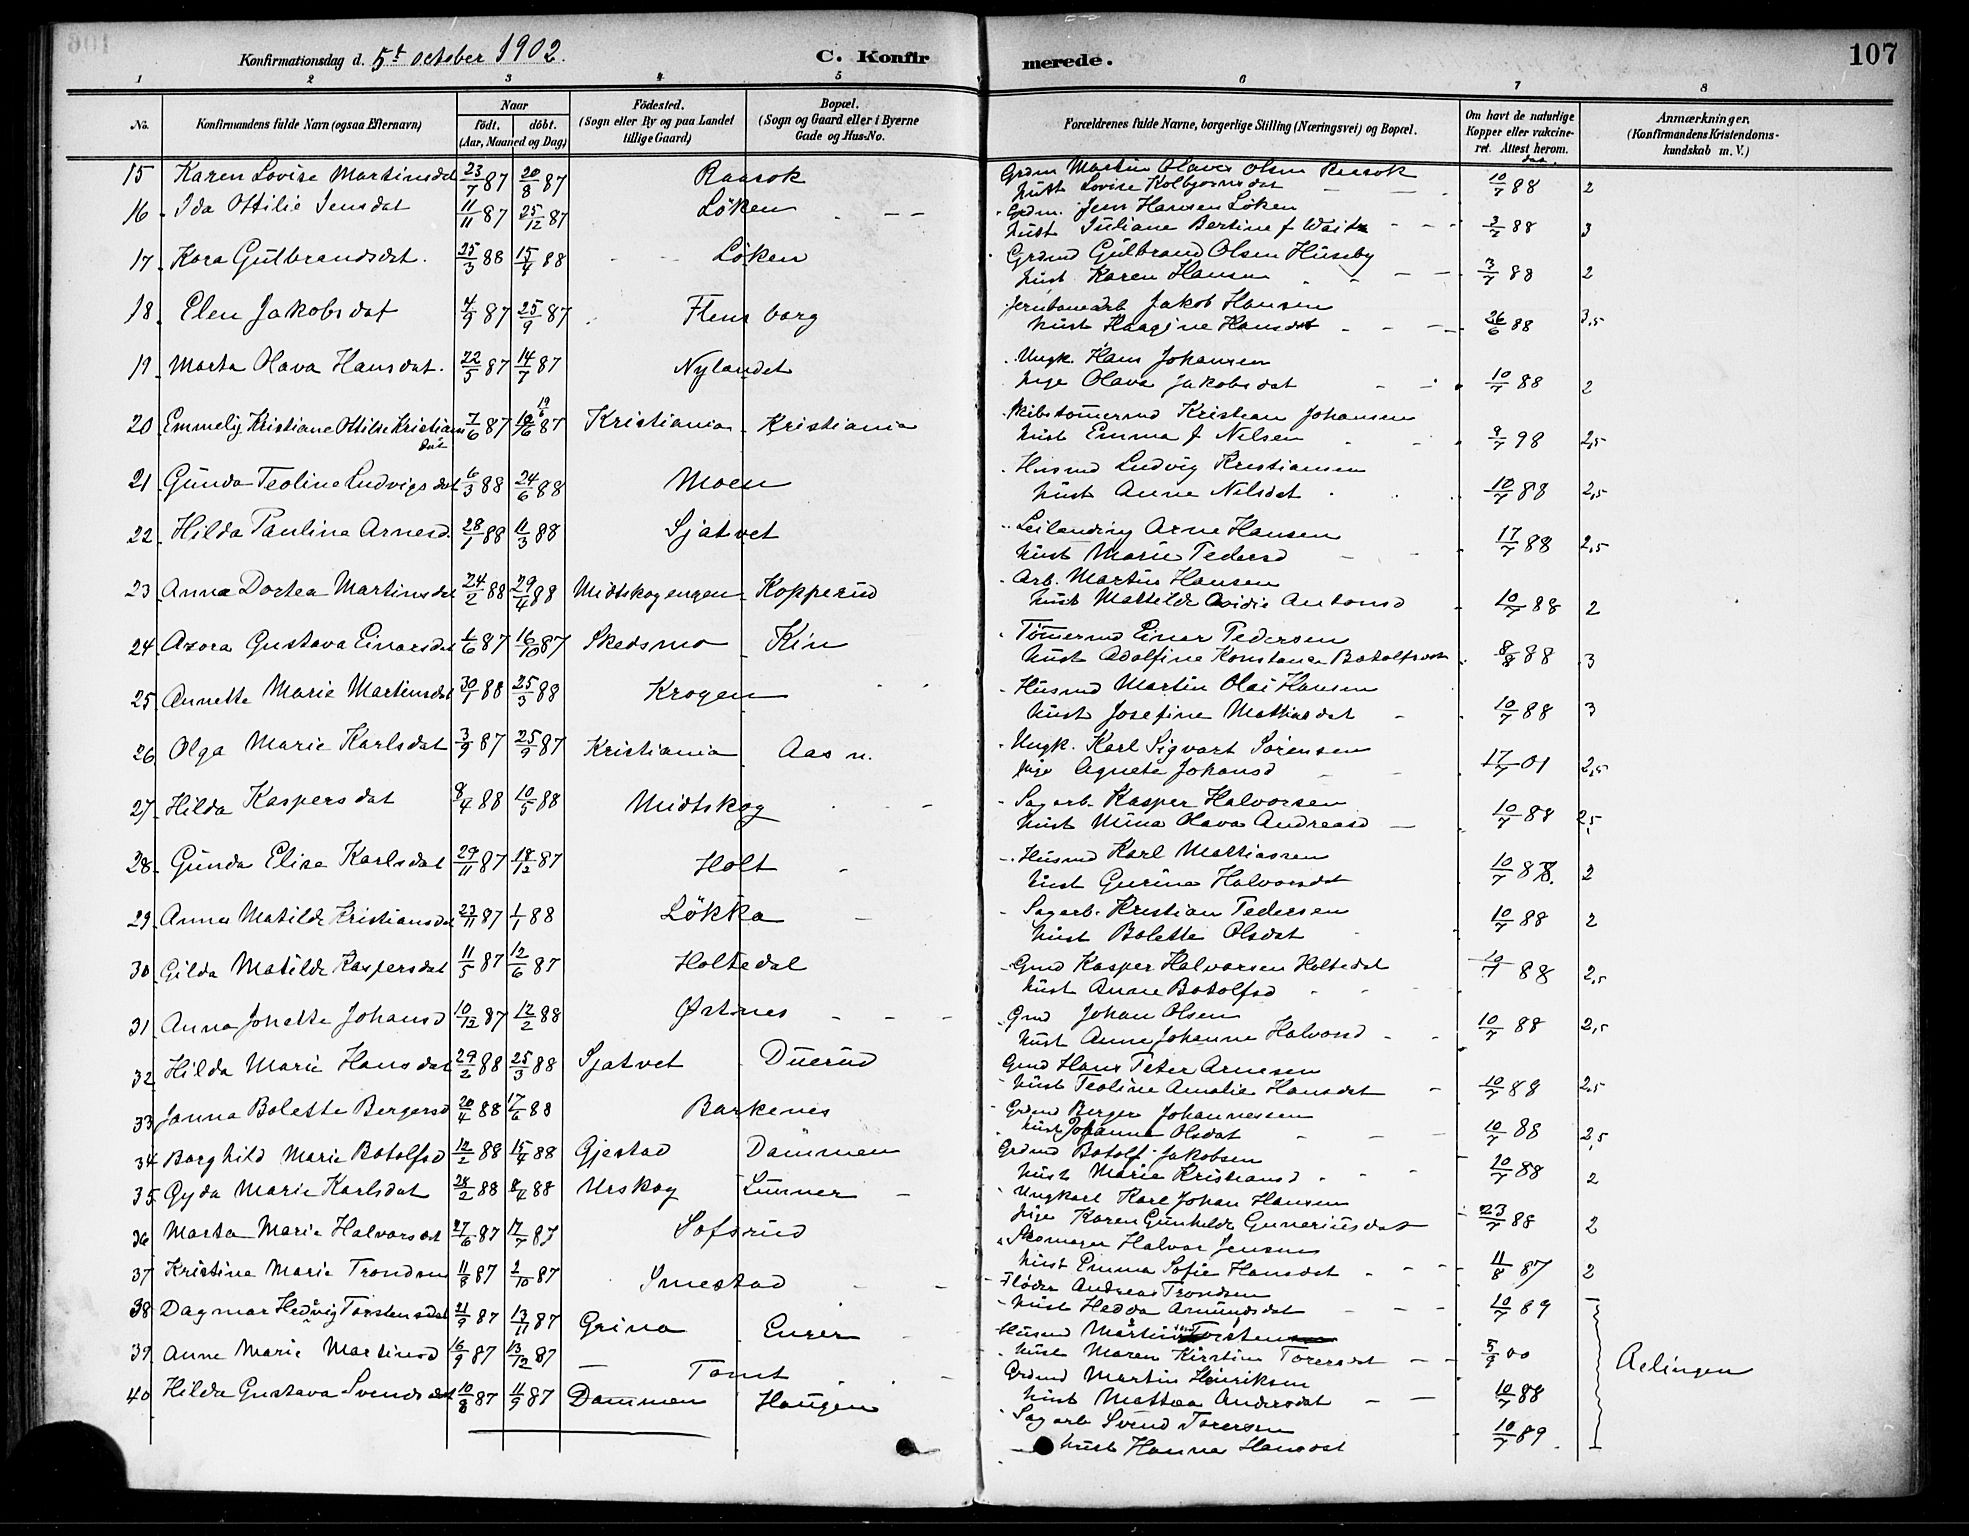 Konfirmationsdag d. 5t october 1902. C. Konfir merede. 107
1 2 3 4 5 6 7 8
No. Konfirmandens fulde Navn (ogsaa Efternavn) Naar født. døbt. (Aar, Maaned og Dag) Fødested. (Sogn eller By og paa Landet tillige Gaard) Bopæl. (Sogn og Gaard eller i Byerne Gade og Hus-No. Forældrenes fulde Navne, borgerlige Stilling (Næringsvei) og Bopæl. Om havt de naturlige Kopper eller vakcineret. Attest herom. Anmærkninger. (Konfirmandens Kristendomskundskab m. V.)
15 Karen Lovise Martinsdat 23/7 87 20/8 87 Raasok Grdm Martin Olaves Olsen Raasok
hust Lovise Kolbjørnsdat 10/7 88 2
16 Ida Ottilie Jensdat 11/11 87 25/12 87 Løken Grdm. Jens Hansen Løken
hust Juliane Bertine f 3/7 88 3
17 Kora Gulbrandsdat. 25/3 88 15/4 88 Løken Grdmd Gulbrand Olsen Huseby
hust Karen Hansen 3/7 88 2
18 Elen Jakobsdat 4/9 87 25/9 87 Flensborg Jernbanearb Jakob Hansen
hust Haagine Hansdat 26/6 88 3,5
19 Marta Olava Hansdat. 22/5 87 14/7 87 Nylandet Ungk. Hans Johansen
pige Olava Jakobsdat 10/7 88 2
20 Emmely Kristiane Ottilie Kristiansdat 7/6 87 19/6 87 Kristiania Kristiania Skibstømermd Kristian Johansen
hust Emma f Nilsen 9/7 98 2,5
21 Gunda Teoline Ludvigsdat 6/3 88 24/6 88 Moen Husmd Ludvig Kristiansen
hust Anne Nilsdat 10/7 88 2,5
22 Hilda Pauline Arnesd 28/1 88 11/3 88 Sjatvet Leilending Arne Hansen
hust Marie Pedersd 17/7 88 2,5
23 Anna Dortea Martinsdat 24/2 88 29/4 88 Midtskogengen Kopperud Arb. Martin Hansen
hust Mattilde Antonsd 10/7 88 2
24 Azora Gustava Einarsdat 1/6 87 16/10 87 Skedsmo Kin Tømermd Einar Pedersen
hust Adolfine Konstance Botolfsdat 8/8 88 3
25 Annette Marie Martinsdat 30/1 88 25/3 88 Krogen Husmd Martin Olai Hansen
hust Josefine Mattiasdat 10/7 88 3
26 Olga Marie Karlsdat 3/9 87 25/9 87 Kristiania Aas n. Ungk. Karl Sigvart Sørensen
pige Agnete Johansd 17/7 01 2,5
27 Hilda Kaspersdat 8/4 88 10/5 88 Midtskog Sagarb. Kasper Halvorsen
hust Mina Olava Andreasd 10/7 88 2,5
28 Gunda Elise Karlsdat 29/11 87 18/12 87 Holt Husmd Karl Mattiassen
hust Gurine Halvorsdat 10/7 88. 2
29 Anna Matilde Kristiansdat 23/11 87 1/1 88 Løkka Sagarb. Kristian Pedersen
hust Bolette Olsdat 10/7 88 2
30 Gilda Matilde Kaspersdat 11/5 87 12/6 87 Holtedal Gmd Kasper Halvorsen Holtedal
hust Anne Botolfsd 10/7 88 2,5
31 Anna Jonette Johansd 10/12 87 12/2 88 Østines Gmd Johan Olsen
hust Anne Johanne Halvorsd 10/7 88 2,5
32 Hilda Marie Hansdat 29/2 88 25/3 88 Sjatvet Duerud Gmd Hans Peter Arnesen
hust Teoline Amalie Hansdat 10/7 88 2,5
33 Janna Bolette Bergersd 20/4 88 17/6 88 Barkenes Grdmd Berger Johannessen
hust Johanne Olsdat 10/7 88 2,5
34 Borghild Marie Botolfsd 12/2 88 15/4 88 Gjestad Dammen Grdmd Botolf Jakobsen
hust Marie Kristiansd 10/7 88 2
35 Gyda Marie Karlsdat 28/2 88 8/4 88 Urskog Lunner Ungkarl Karl Johan Hansen
pige Karen Gunhilde Guneriusdat 23/7 88 2
36 Marta Marie Halvorsdat 27/6 87 17/7 87 Sofsrud Skomager Halvor Jensen
hust Emma Sofie Hansdat 11/8 87 2
37 Kristine Marie Trondsen 11/8 87 2/10 87 Smestad Fløder Andreas Trondsen
hust Hedda Amundsdat 10/7 89
38 Dagmar Hedvig Torstensdat 21/9 87 13/11 87 Grina Enger Husmd Martin Torstensen
hust Maren Kirstine Torersdat 5/9 00
39 Anne Marie Martinsd 16/9 87 13/12 87 Tomt Grdmd Martin Henriksen
hust Mattea Andersdat 10/7 88 Aelingen
40 Hilda Gustava Svendsdat 10/8 87 11/9 87 Dammen Haugen Sagarb Svend Torersen
hust Hanna Hansdat 10/7 89